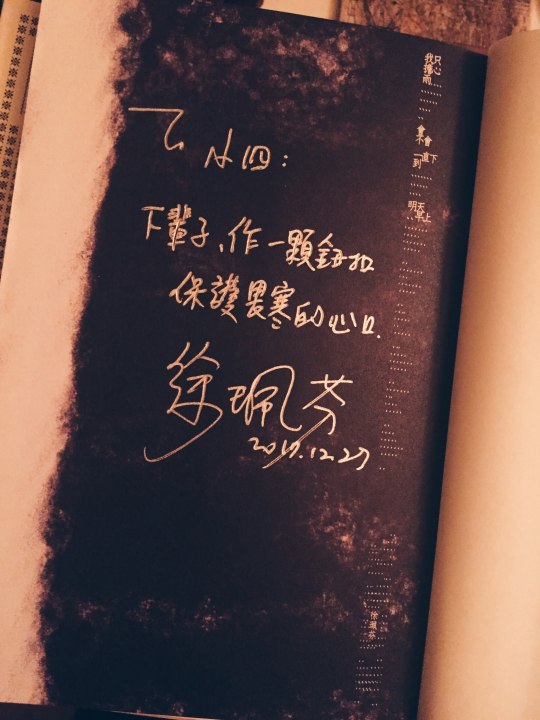 To 小四:
下輩子、作一顆鈕扣
保護畏寒的心口.
徐珮芬
2017.12.27
我只擔心雨
會不會
一直下到
明天早上
徐珮芬